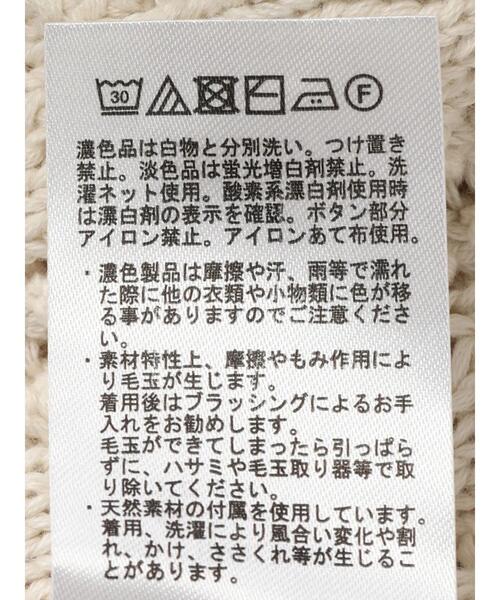 30 F
濃色品は白物と分別洗い。つけ置き
禁止。淡色品は蛍光増白剤禁止。洗
濯ネット使用。酸素系漂白剤使用時
は漂白剤の表示を確認。ボタン部分
アイロン禁止。アイロンあて布使用。
・濃色製品は摩擦や汗、雨等で濡れ
た際に他の衣類や小物類に色が移
る事がありますのでご注意くださ
い。
・素材特性上、摩擦やもみ作用によ
り毛玉が生じます。
着用後はブラッシングによるお手
入れをお勧めします。
毛玉ができてしまったら引っぱら
ずに、ハサミや毛玉取り器等で取
り除いてください。
・天然素材の付属を使用しています。
着用、洗濯により風合い変化や割
れ、かけ、ささくれ等が生じるこ
とがあります。